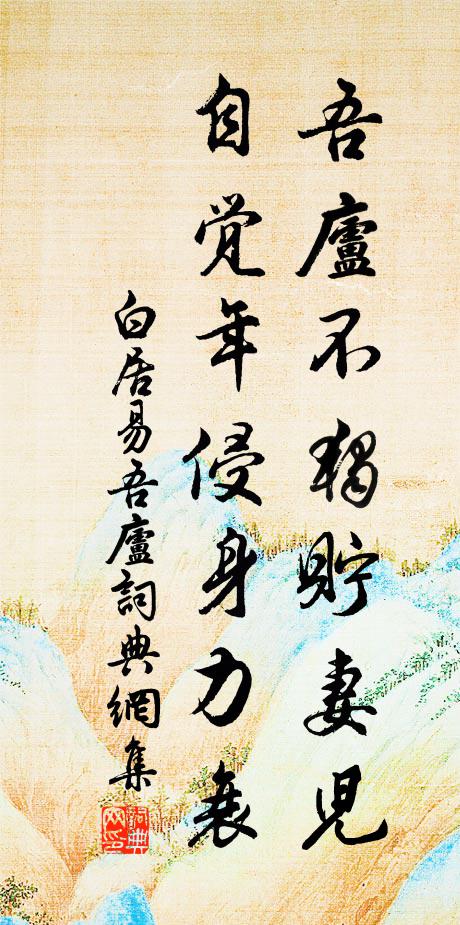 吾廬不獨貯妻児
自觉年侵身力衰
白居易吾廬詞典網集
詞典网印